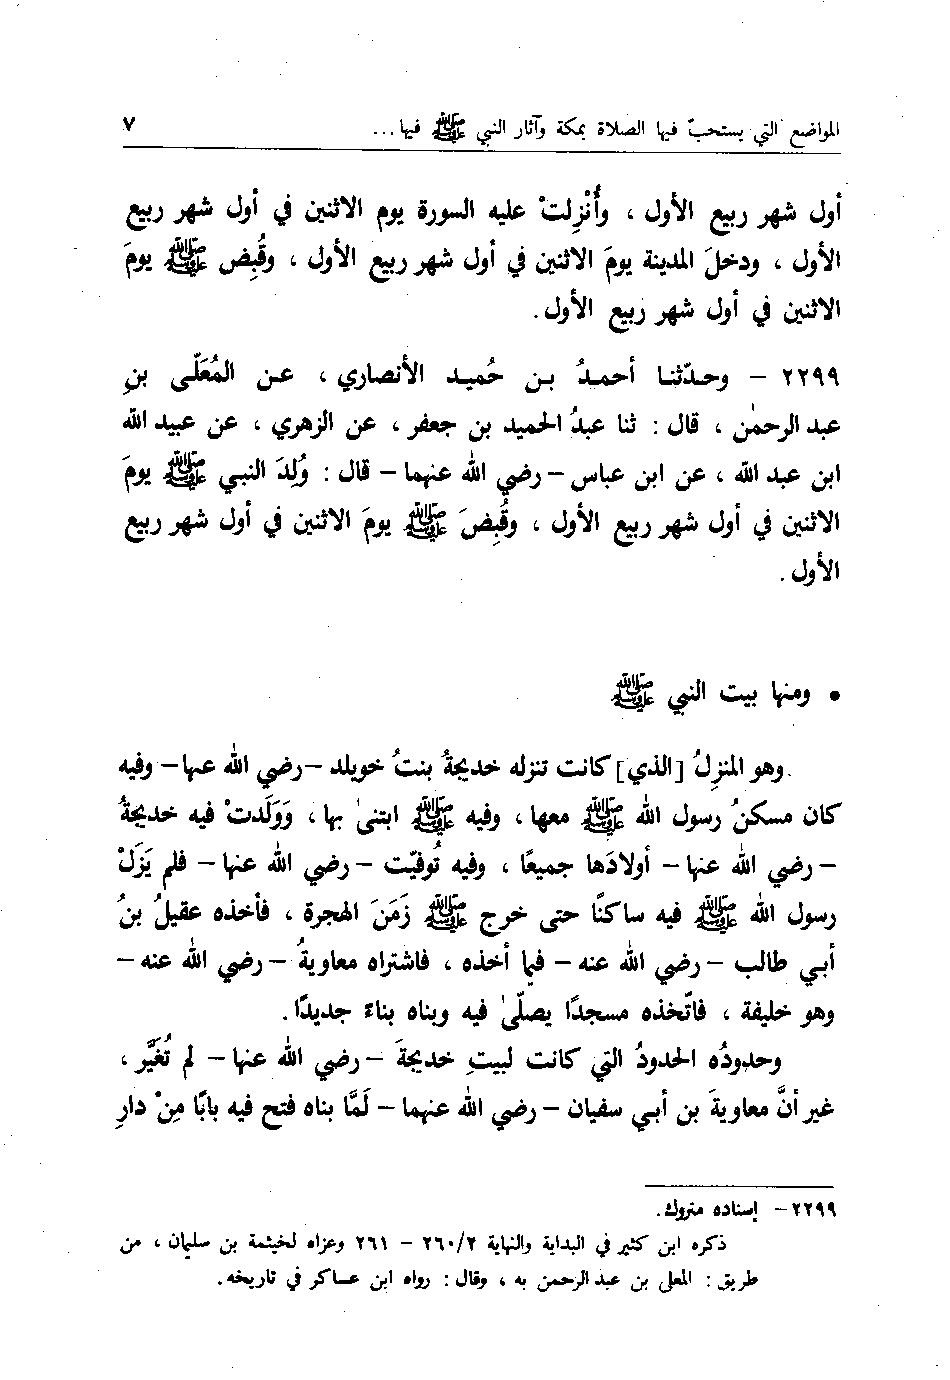 المواضع التي يستحبّ فيها الصلاة بمكة وآثار النبي ﷺ فيها ...
٧
أول شهر ربيع الأول ، وأُنْزِلتْ عليه السورة يوم الاثنين في أول شهر ربيع
الأول ، ودخلَ المدينة يومَ الاثنين في أول شهر ربيع الأول ، وقُبِضَ ﷺ يومَ
الاثنين في أول شهر ربيع الأول .
٢٢٩٩ - وحدّثنا أحمدُ بن حُميد الأنصاري ، عن المُعَلّى بنِ
عبد الرحمٰن ، قال : ثنا عبدُ الحميد بن جعفر ، عن الزهري ، عن عبيد الله
ابن عبد الله ، عن ابن عباس - رضي الله عنهما - قال : وُلِدَ النبي ﷺ يومَ
الاثنين في أول شهر ربيع الأول ، وقُبِضَ ﷺ يومَ الاثنين في أول شهر ربيع
الأول .
• ومنها بيت النبي ﷺ
وهو المنزِلُ [الذي] كانت تنزله خديجةُ بنتُ خويلد - رضي الله عنها - وفيه
كان مسكنُ رسول الله ﷺ معها ، وفيه ﷺ ابتنىٰ بها ، وَوَلَدتْ فيه خديجةُ
- رضي الله عنها - أولادَها جميعًا ، وفيه تُوفّيت - رضي الله عنها - فلم يَزَلْ
رسول الله ﷺ فيه ساكنًا حتى خرج ﷺ زَمَنَ الهجرة ، فأخذه عقيلُ بنُ
أبي طالب - رضي الله عنه - فيما أخذه ، فاشتراه معاويةُ - رضي الله عنه -
وهو خليفة ، فاتّخذه مسجدًا يصلّىٰ فيه وبناه بناءً جديدًا .
وحدودُه الحدودُ التي كانت لبيتِ خديجةَ - رضي الله عنها - لم تُغَيَّر ،
غير أنَّ معاويةَ بن أبي سفيان - رضي الله عنهما - لَمَّا بناه فتح فيه بابًا مِنْ دارِ
٢٢٩٩ - إسناده متروك .
ذكره ابن كثير في البداية والنهاية ٢/٢٦٠ - ٢٦١ وعزاه لخيثمة بن سليمان ، من
طريق : المعلى بن عبد الرحمن به ، وقال : رواه ابن عساكر في تاريخه .